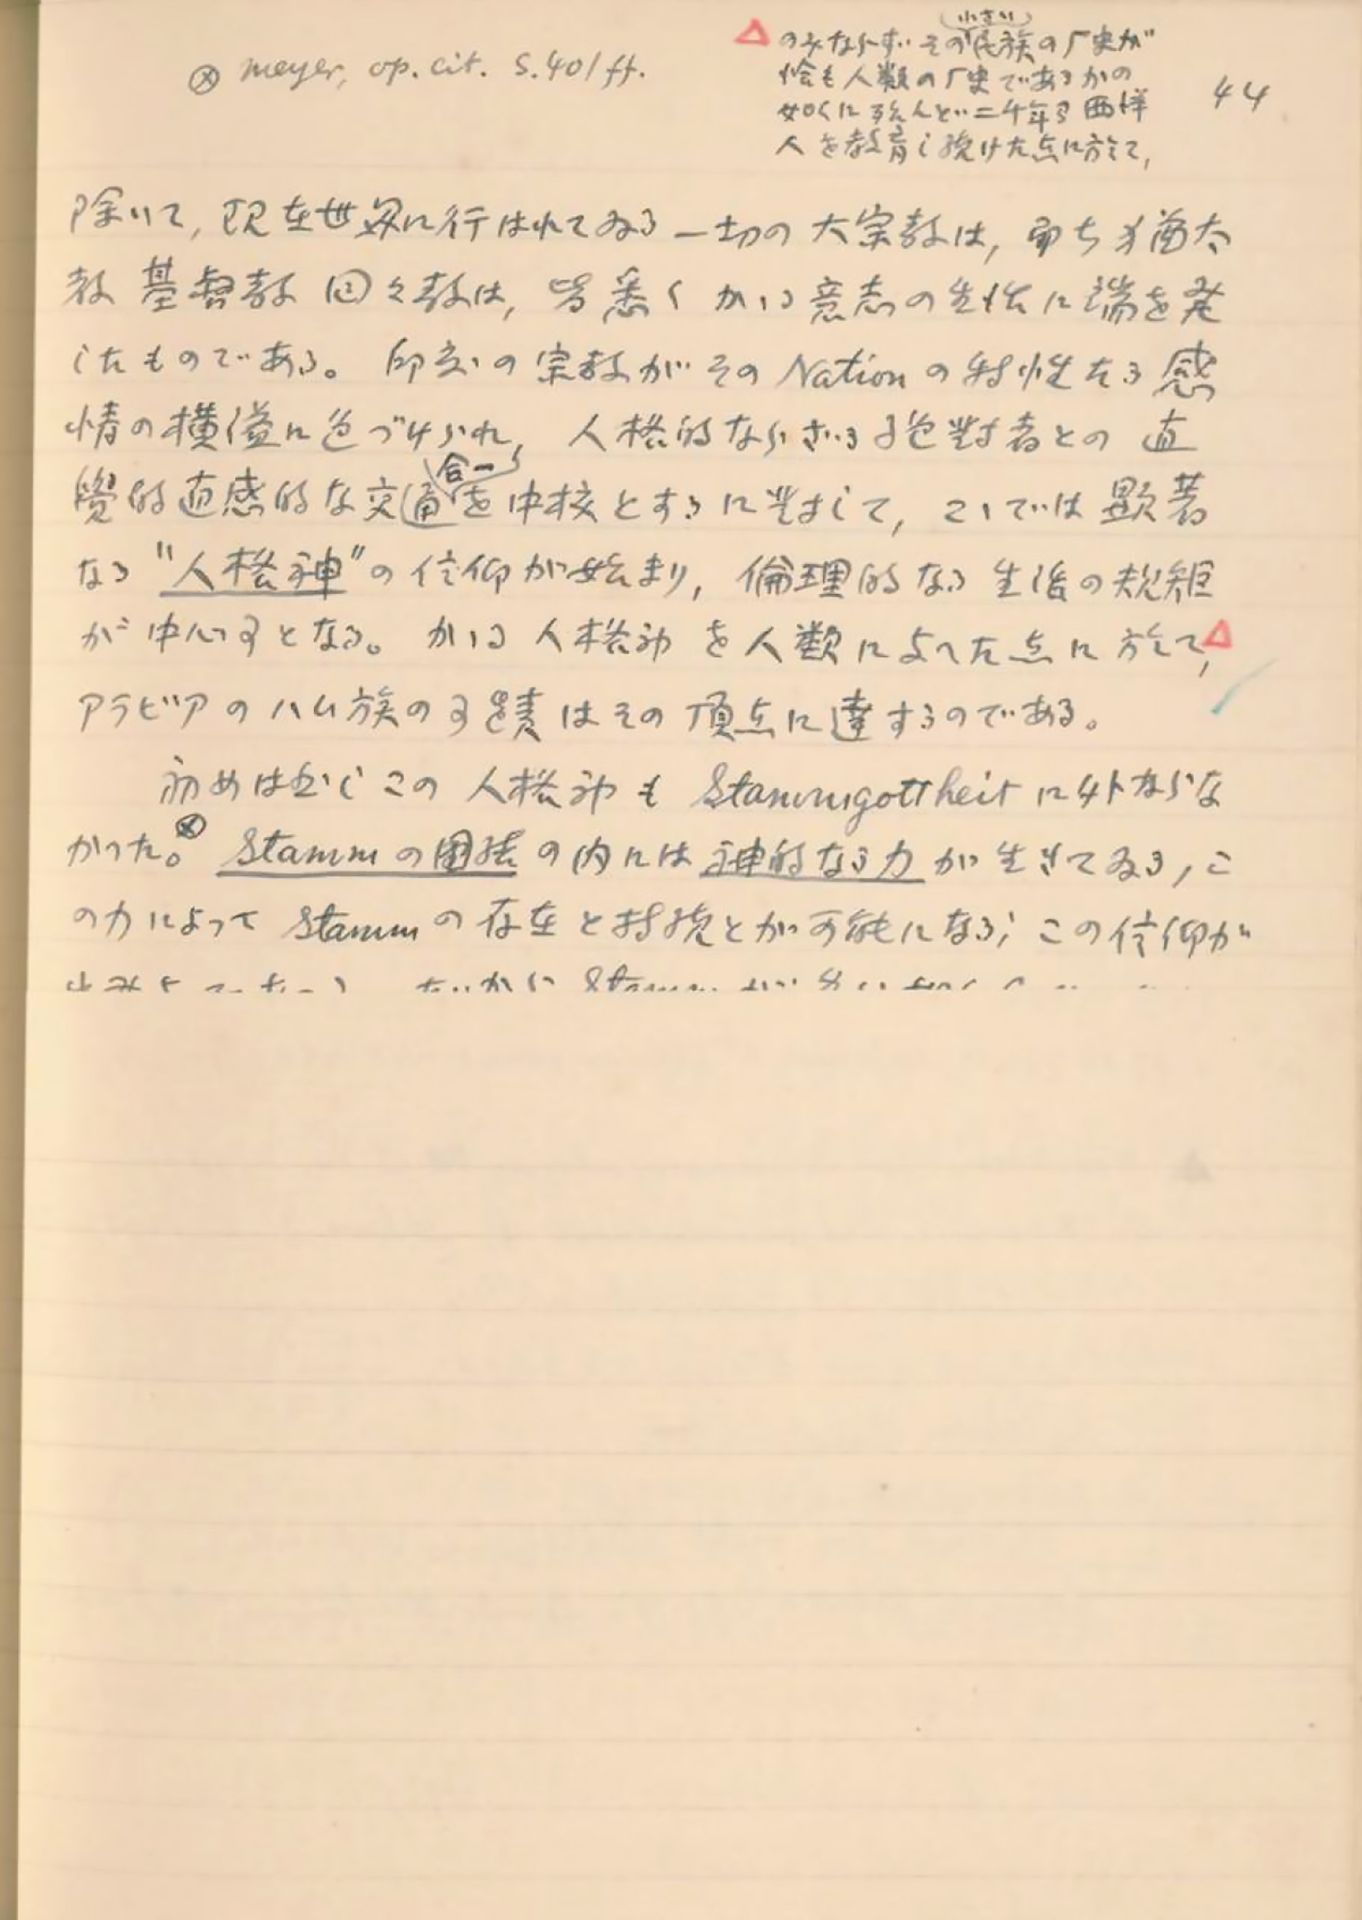 ⊗ Meyer, op. cit. S. 401 ff.
44
△ のみならず、その(小さい)民族の厂史が
恰も人類の厂史であるかの
如くに殆んど二千年る西洋
人を教育し続けた点に於て,
除いて, 現在世界に行はれてゐる一切の大宗教は, 即ち猶太
教 基督教 回々教は, 皆悉くかゝる意志の生活に端を発
したものである。印度の宗教がその Nation の特性たる感
情の横溢に色づけられ, 人格的ならざる絶對者との直
覺的直感的な交通(合一)を中核とするに對して, こゝでは顕著
なる "人格神" の信仰が始まり, 倫理的なる生活の規矩
が中心となる。かゝる人格神を人類に与へた点に於て,△
アラビアのハム族の功績はその頂点に達するのである。
初めは併しこの人格神も Stammgottheit に外ならな
かった。⊗ Stamm の団結の内には神的なる力が生きてゐる, こ
の力によって Stamm の存在と持続とが可能になる; この信仰が